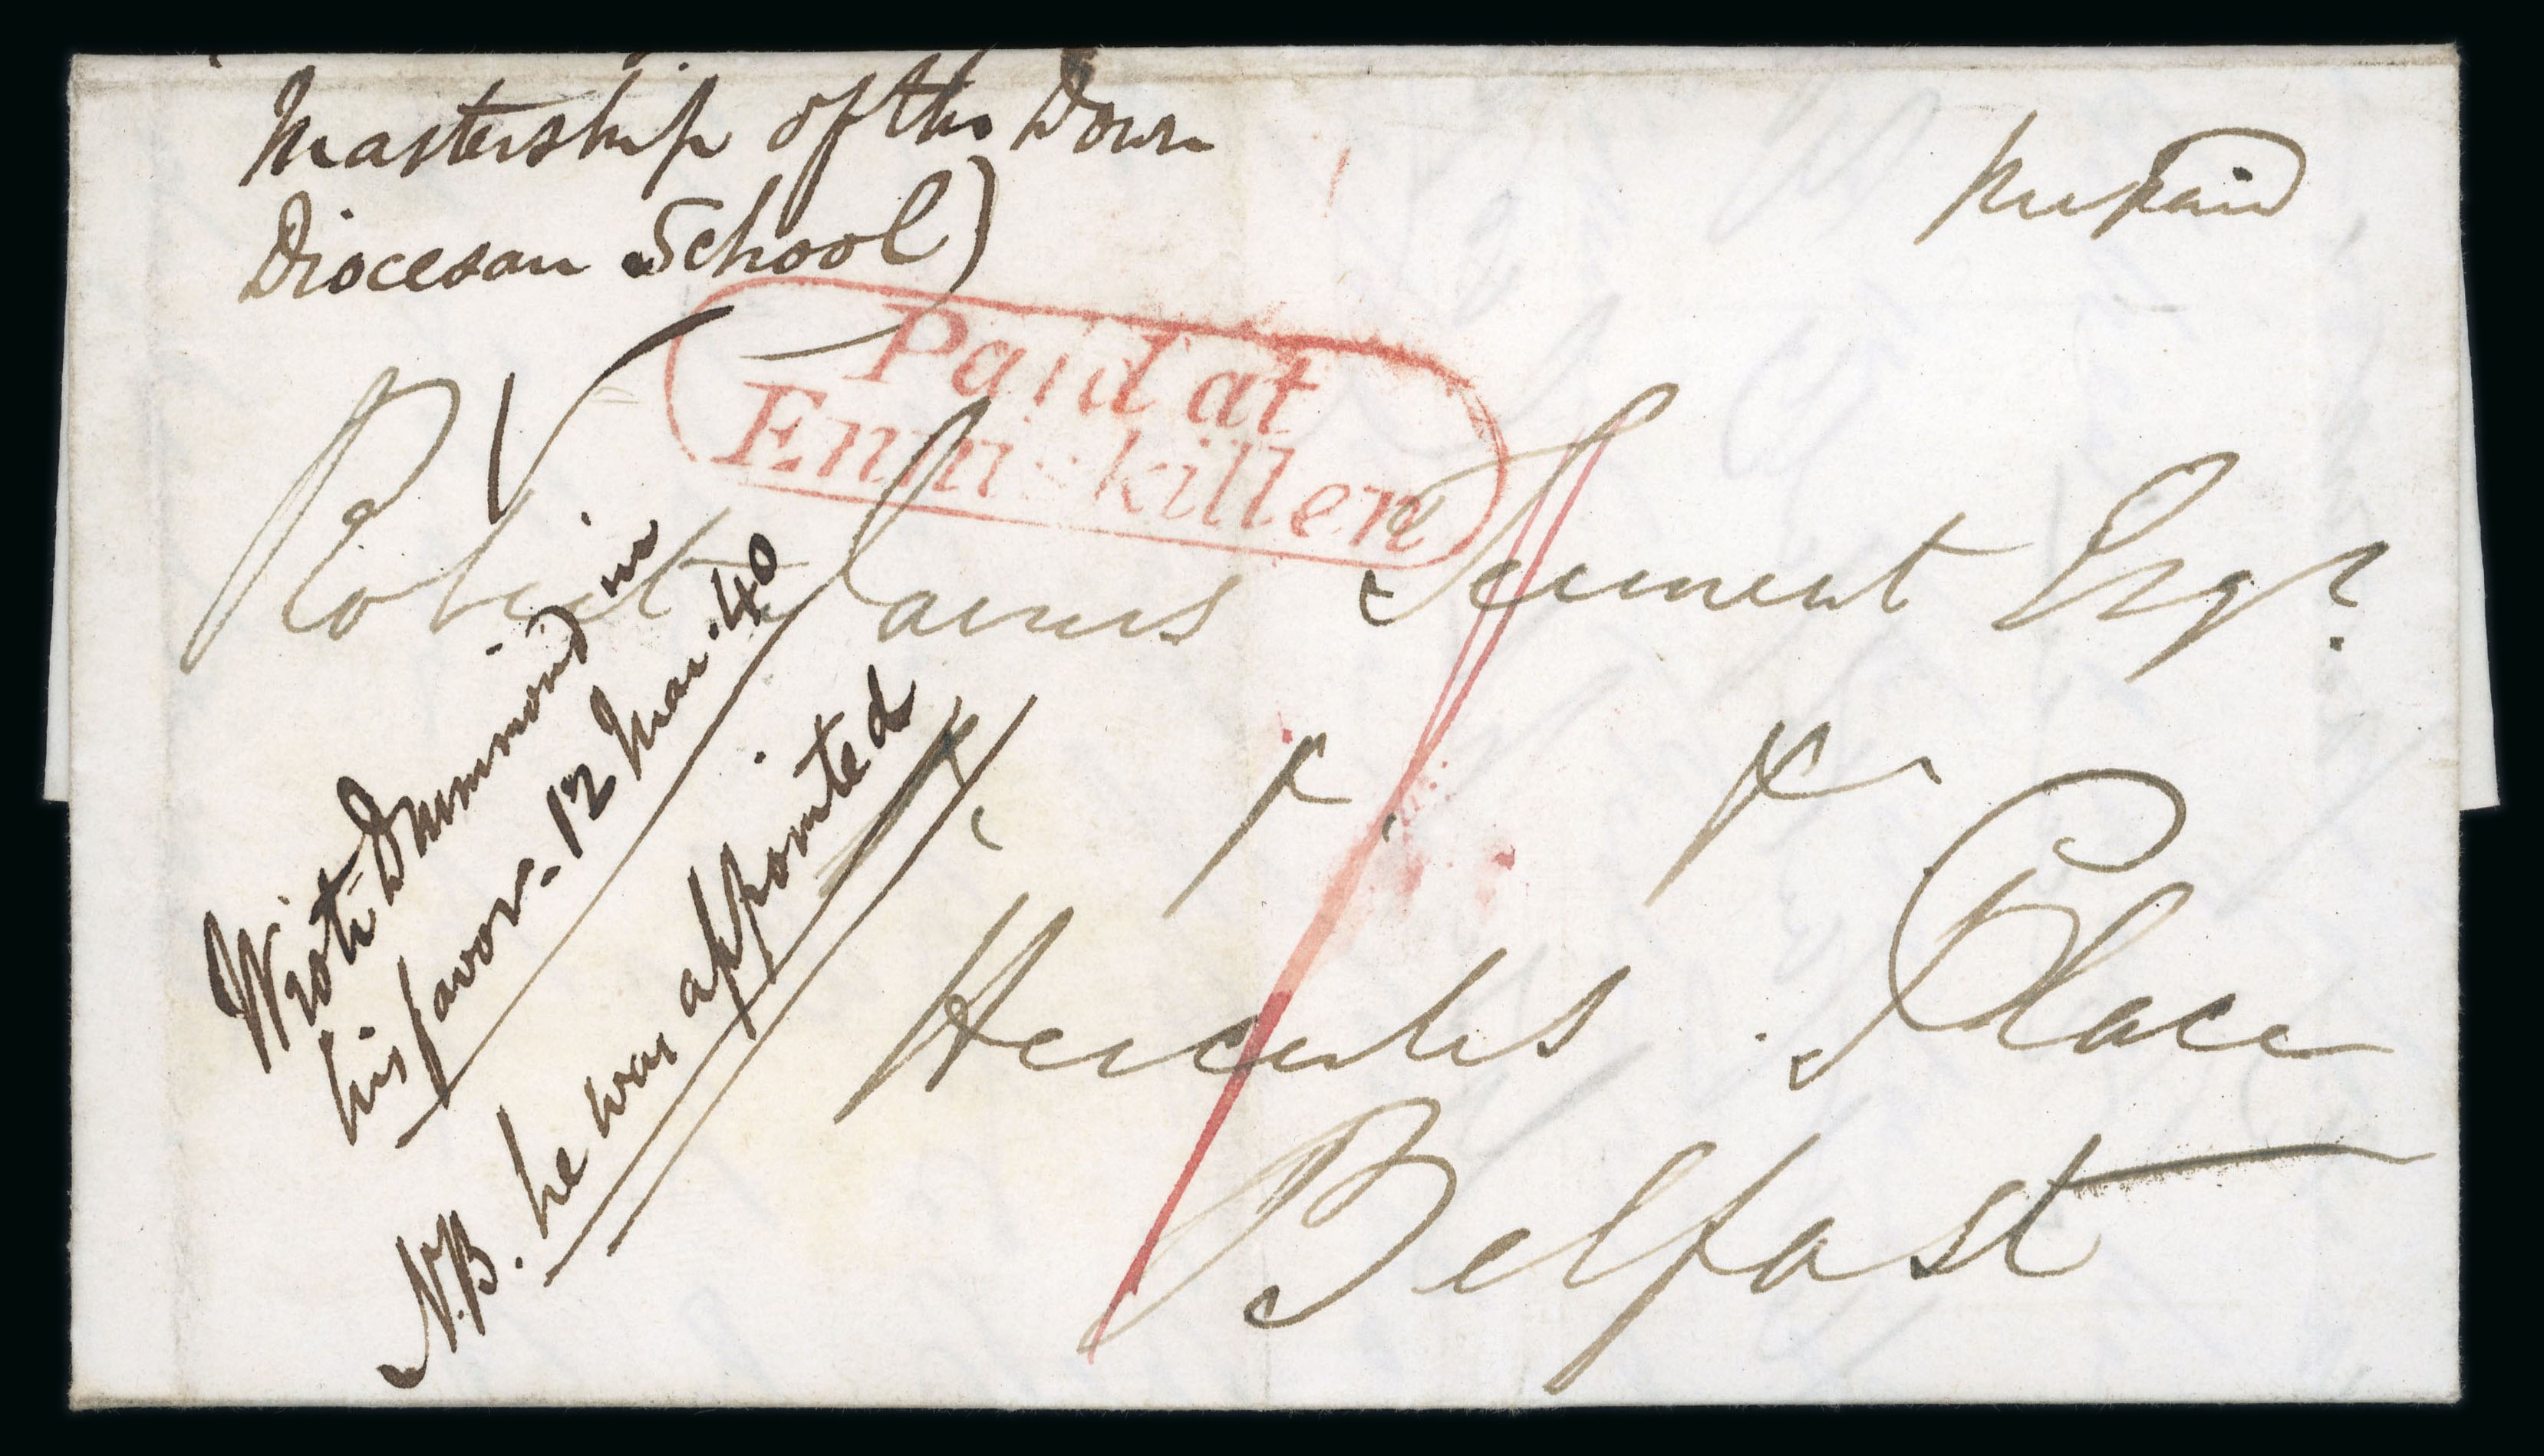 Mastership of the Down
Diocesan School)
prepaid
Paid at
Enniskillen
Robert James Tennent Esqr.
&c &c &c
Hercules Place
Belfast
Wrote Drummond in
his favor. 12 Mar. 40
N.B. he was appointed
1